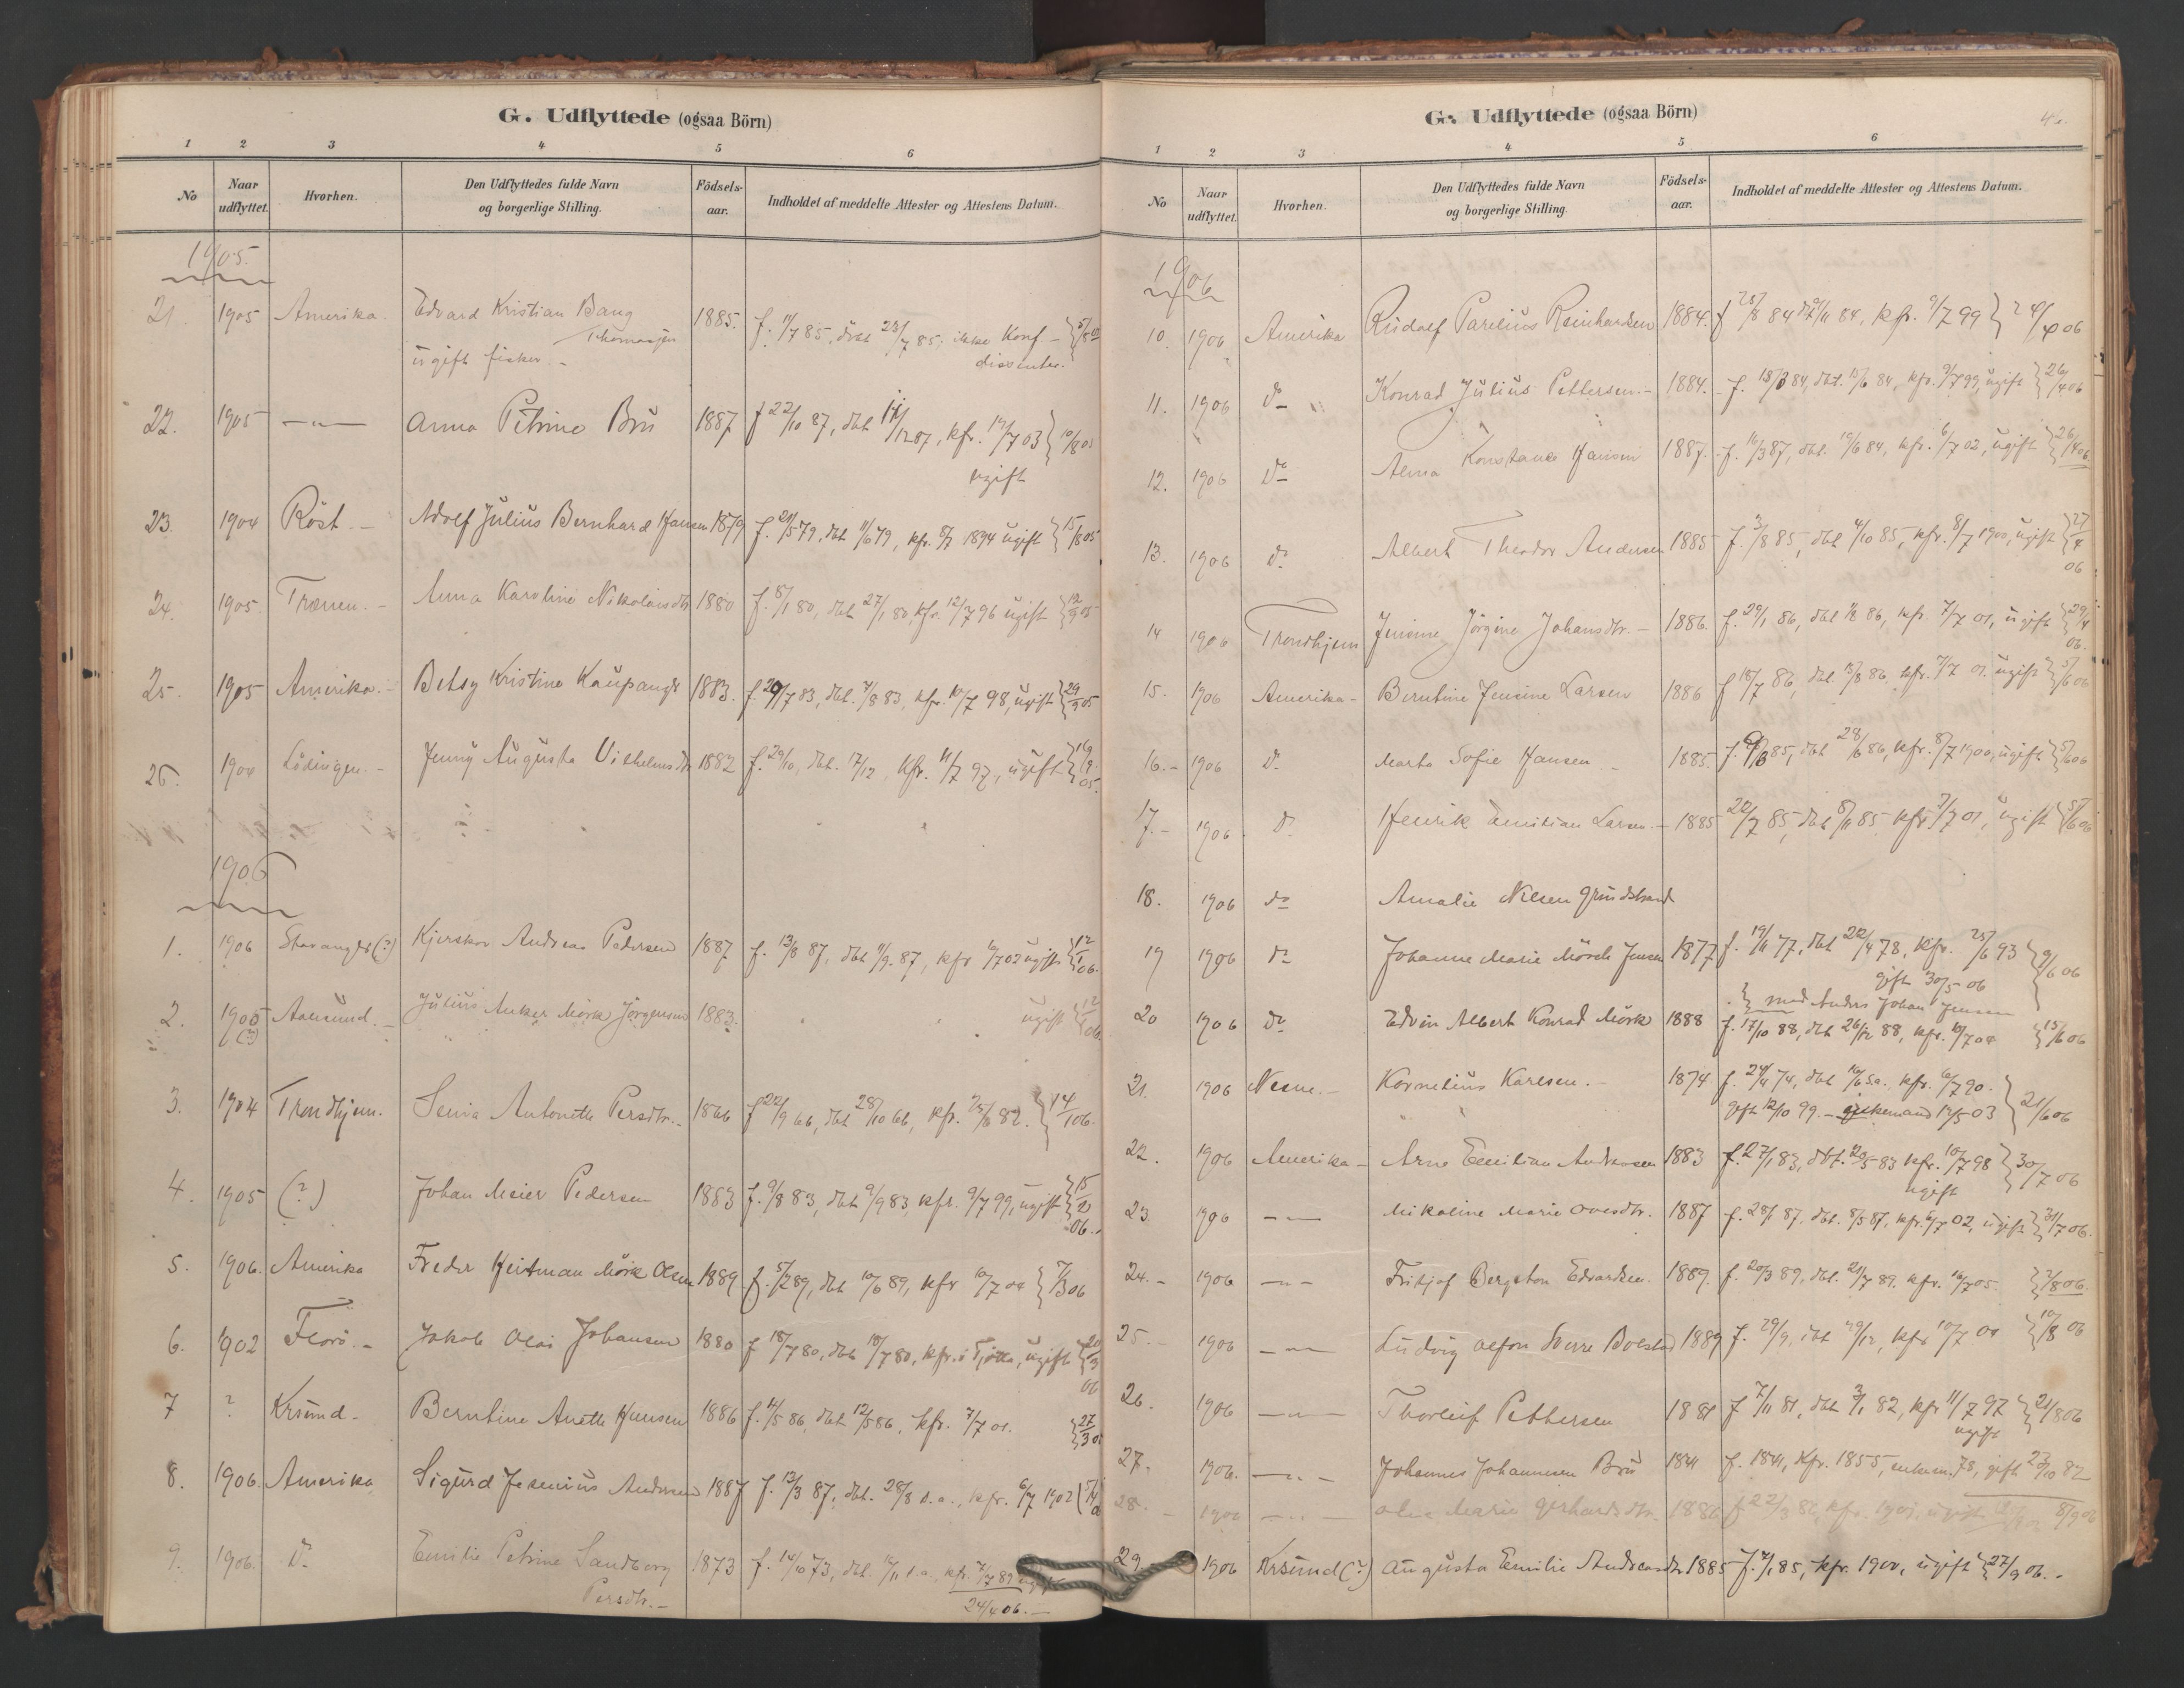 G. Udflyttede (ogsaa Börn)
1 2 3 4 5 6
No Naar udflyttet. Hvorhen. Den Udflyttedes fulde Navn og borgerlige Stilling. Födsels-aar. Indholdet af meddelte Attester og Attestens Datum.
1905.
21. 1905 Amerika. Edvard Kristian Bang 1885. f. 11/7 85, döbt 23/7 85, ikke Konf -
Thomasjen
ugift fisker. - dissenter.
22. 1905 -"- Anna Petrine Bru 1887 f 22/10 87, dbt 12 87, kfr. 12/7 03 } 10/8 05
ugift
23. 1904 Röst. - Adolf Julius Bernhard Hansen 1879 f. 21/5 79, dbt 11/6 79, kfr. 1894 ugift } 15/8 05
24. 1905. Trænen. - Anna Karoline Nikolaisdtr 1880 f. 8/1 80, dbt 27/1 80, kfr. 12/7 96 ugift } 12/9 05
25. 1905 Amerika. - Betsy Kristine Kaupanger 1883. f. 29/7 83, dbt. 7/8 83, kfr. 10/7 98, ugift } 29/9 05
26. 1904 Lödingen. - Jenny Augusta Vilhelmsdtr 1882 f. 29/10, dbt. 17/12, kfr. 11/7 97, ugift } 05.
1906
1. 1906 Stavanger (?) Kjerskov Andreas Pedersen 1887 f. 13/8 87, dbt 11/9. 87, kfr 6/7 02 ugift } 12/1 06.
2. 1905 (?) Aalesund. - Julius Anker Mörk Jörgensen 1883. ugift } 12/1 06.
3. 1904 Trondhjem. Senia Antonette Persdtr. - 1866 f 22/9 66, dbt 28/10 66, kfr. 25/6 82. } 14/1 06.
4. 1905 (?) Johan Meier Pedersen 1883 f. 9/8 83, dbt 9/9 83, kfr. 9/7 99, ugift } 15/2 06.
5. 1906. Amerika Freder Heitman Mörk Olsen 1889 f. 5/2 89, dbt 10/6 89, kfr 10/7 04 } 7/3 06
6. 1902 Florö. - Jakob Olai Johansen 1880 f 18/7 80, dbt 18/7 80, kfr. i Tjötta, ugift } 20/3 06
7 ? Krsund. Berntine Anette Hansen 1886 f. 14/5 86, dbt 12/5 86, kfr. 7/7 01. } 27/3 0
8. 1906. Amerika Sigurd Jesenius Andersen 1887 f. 13/3 87, dbt. 28/8 s.a., kfr. 6/7 1902
9. 1906. Do Emilie Petrine Sandberg 1873 f. 14/10 73, dbt. 16/11 s.a., kfr. 7/7 89
Persdtr. - 24/4 06. -
G. Udflyttede (ogsaa Börn)
1 2 3 4 5 6
No Naar udflyttet. Hvorhen. Den Udflyttedes fulde Navn og borgerlige Stilling. Födsels-aar. Indholdet af meddelte Attester og Attestens Datum.
1906
10. 1906 Amerika Rudolf Parelius Reinhardsen 1884. f 25/8 84 dbt 9/11 84, kfr. 9/7 99 } 24/4 06
11. 1906 do Konrad Julius Pettersen. - 1884. f. 18/3 84, dbt. 15/6 84, kfr. 9/7 99, ugift } 26/4 06
12. 1906 Do Alma Konstance Hansen 1887. f. 11/3 87, dbt. 10/6 84, kfr. 6/7 02, ugift } 26/4 06
13. 1906 do Albert Theodor Andersen 1885 f. 3/8 85, dbt 4/10 85, kfr. 8/7 1900, ugift } 27/4 06
14 1906 Trondhjem Jensine Jörgine Johansdtr. - 1886. f. 29/1 86, dbt 86, kfr. 7/7 01, ugift } 29/4 06.
15. 1906 Amerika - Berntine Jensine Larsen 1886 f 18/7 86, dbt. 15/8 86, kfr. 7/7 01. ugift } 5/6 06
16. - 1906 do Marta Sofie Hansen - 1885. f. 85, dbt 28/6 86, kfr. 8/7 1900, ugift } 5/6 06
17. - 1906 do Henrik Emitian Larsen. - 1885 20/7 85, dbt 8/11 85 kfr. 7/7 01, ugift } 5/6 06
18. 1906 do Amalie Nilsen Grundstrand
19 1906 do Johanne Marie Mörch Jensen 1877 f. 19/11 77, dbt 22/4 78, kfr. 25/6 93 } 9/6 06
gift 30/5 06
} med Anders Johan Jensen
20 1906 do Edvin Albert Konrad Mörk 1888 f. 17/10 88, dbt 26/12 88, kfr. 10/7 04 } 15/6 06
21. 1906 Nesne. - Kornelius Karlsen. - 1874 f. 24/4 74, dbt 14/6 s.a., kfr. 6/7 90. } 21/6 06
gift 12/10 99. - enkemand 12/5 03
22. 1906 Amerika - Arne Emilian Andersen 1883 f. 27/1 83, dbt. 20/5 83 kfr. 10/7 98 } 30/7 06
ugift
23. 1906 -"- Mikaline Marie Ovesdtr. 1887 f. 28/1 87, dbt. 8/5 87, kfr. 6/7 02, ugift } 31/7 06.
24. - 1906 -"- Fritjof Bergeton Edvardsen. 1889. f. 20/3 89, dbt. 21/7 89, kfr. 16/7 05. } 7/8 06.
25. - 1906 -"- Ludvig Alfon Sverre Bolstad 1889 f. 29/9, dbt 29/12, kfr 10/7 04 } 10/8 06
26. 1906 -"- Thorleif Pettersen 1881 f 7/11 81, dbt 3/1 82, kfr 11/7 97 } 21/8 06
ugift
27. 1906. -"- Johannes Johannesen Bru 1841 f. 1841, kfr. 1855, enkem. 78, gift 23/10 82
28. - 1906 -"- Marie Gerhardsdtr. 1886 f 22/3 86, kfr. 1901, ugift 8/9 06
29. 1906 Krsund (?) Augusta Emilie Andreasdtr 1885 f. 7/1 85, kfr. 1900, ugift } 27/9 06. -